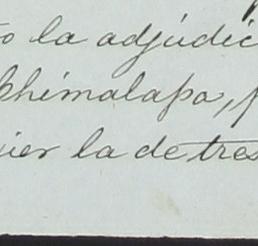 o la adjudic
Chimalapa,
uier la de tres